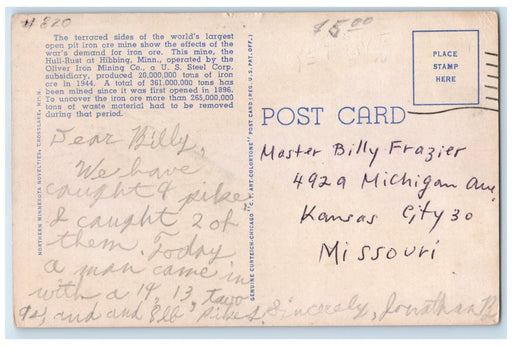 # 820
$5.00
The terraced sides of the world's largest
open pit iron ore mine show the effects of the
war's demand for iron ore. This mine, the
Hull-Rust at Hibbing, Minn., operated by the
Oliver Iron Mining Co., a U. S. Steel Corp.
subsidiary, produced 20,000,000 tons of iron
ore in 1944. A total of 361,000,000 tons has
been mined since it was first opened in 1896.
To uncover the iron ore more than 265,000,000
tons of waste material had to be removed
during that period.
PLACE
STAMP
HERE
POST CARD
NORTHERN MINNESOTA NOVELTIES, CROSSLAKE, MINN.
GENUINE CURTEICH-CHICAGO "C.T. ART-COLORTONE" POST CARD (REG. U.S. PAT. OFF.)
Dear Billy,
We have
caught 4 pike
I caught 2 of
them. Today
a man came in
with a 14, 13, two
9s, and and 8 lb pikes. Sincerely, Jonathan B
Master Billy Frazier
4929 Michigan Ave,
Kansas City 30
Missouri